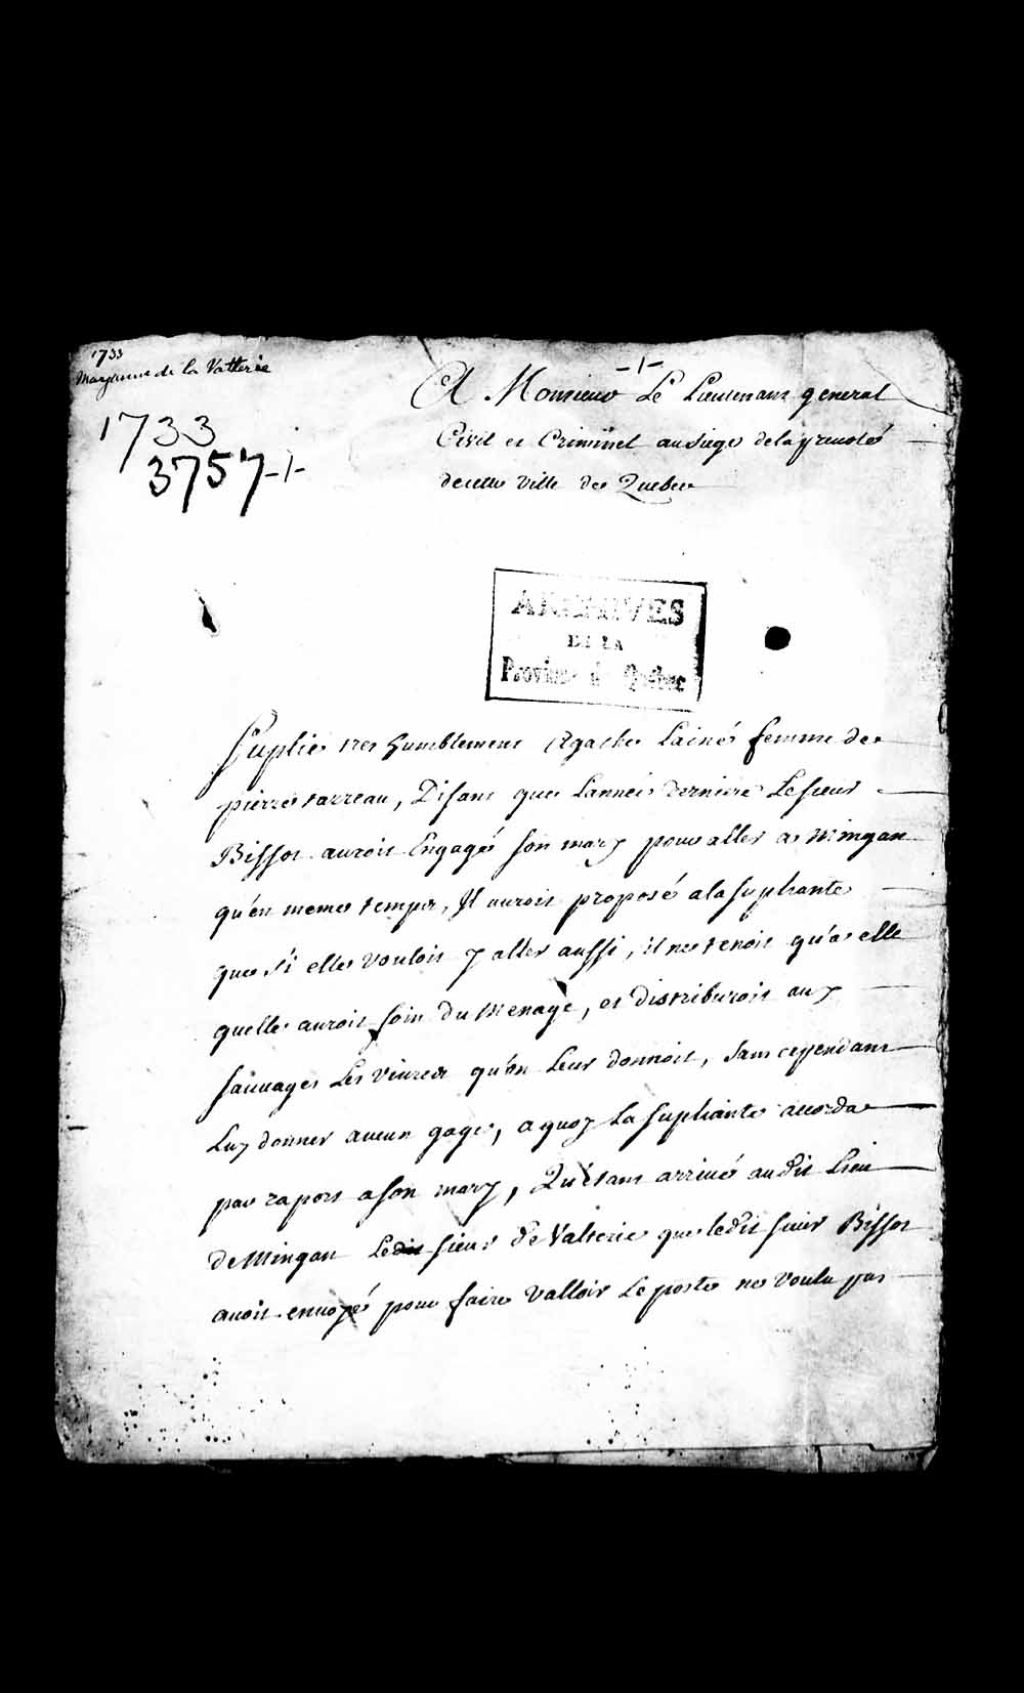 1733
Margane de la Valterie
1733
3757-1-
-1-
A Monsieur Le Lieutenant general
Civil et Criminel au siege de la prevoté
de cette ville de Quebec
ARCHIVES
DE LA
Province de Québec
Suplie tres humblement Agathe Lainé femme de
pierre tarreau, Disant que Lanneé derniere Le sieur
Bissot auroit Engagé son mary pour aller a Mingan
qu'en meme temps, Il auroit proposé a la supliante
que si elle vouloit y aller aussi, il ne tenoit qu'a elle
quelle auroit soin du menage, et distriburoit aux
sauvages Les vivres qu'on Leur donnoit, sans cependant
Luy donner aucun gage, a quoy La supliante acorda
par raport a son mary, Qu'étant arrivé au dit Lieu
de Mingan Ledit sieur de Valterie que ledit sieur Bissot
avoit envoyé pour faire valloir Le poste ne voulu pas